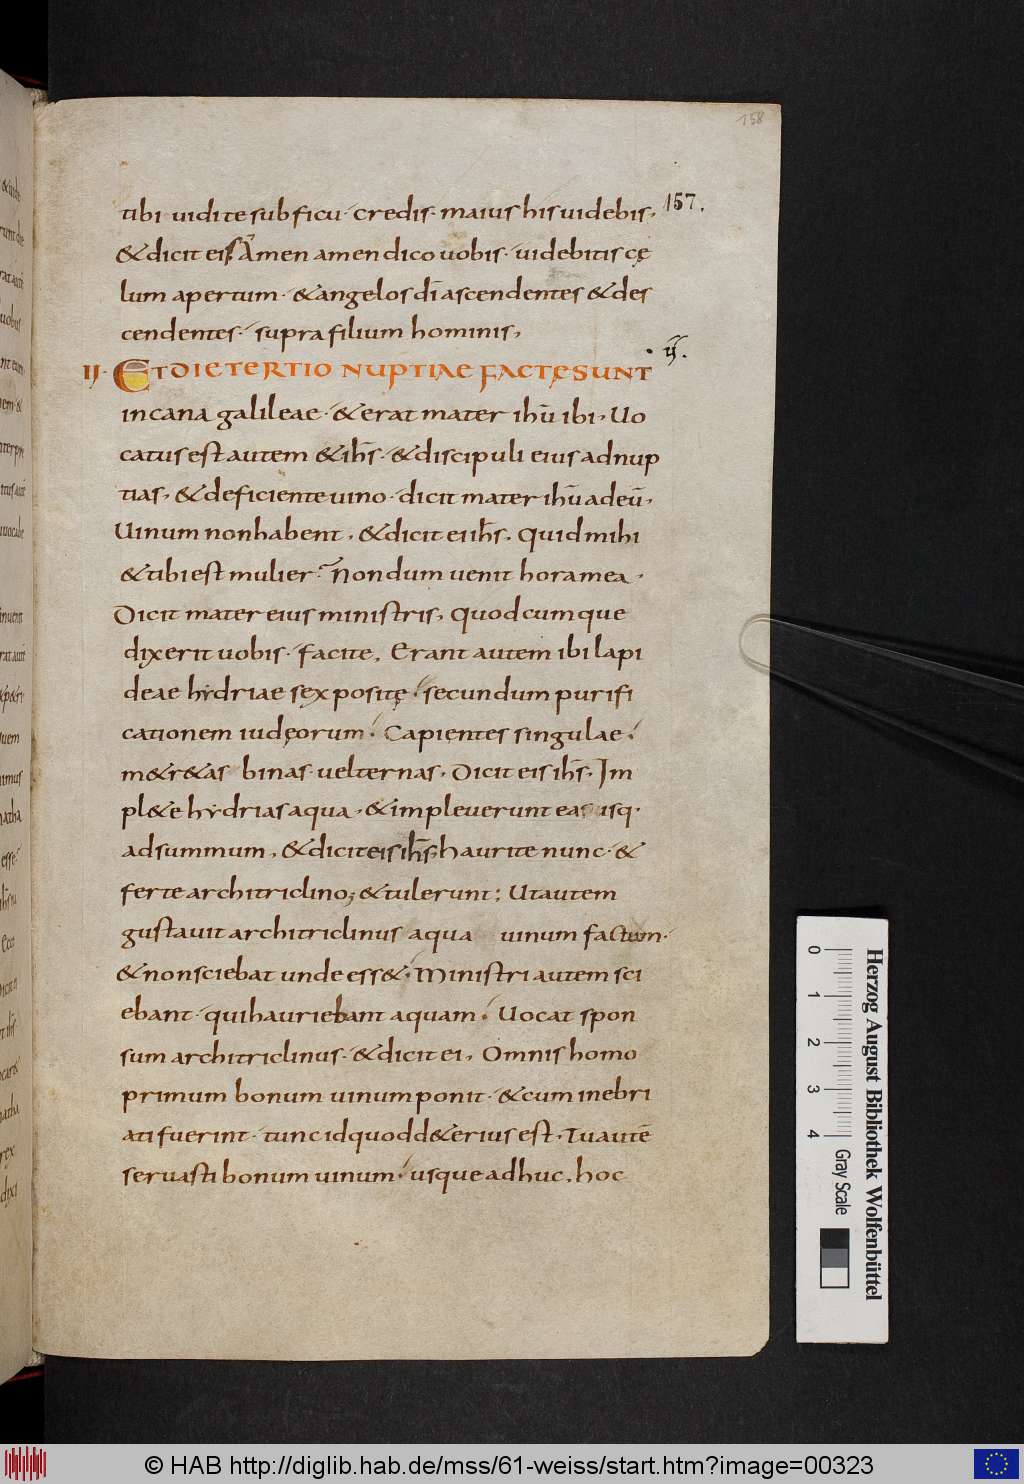 158
157.
tibi· uidi te sub ficu· credis· maius his uidebis,
& dicit eis Amen amen dico uobis· uidebitis cę
lum apertum· & angelos dī ascendentes & des
cendentes· supra filium hominis,
II· ET DIE TERTIO NUPTIAE FACTĘ SUNT · ij.
in cana galileae· & erat mater ihū ibi, Uo
catus est autem & ihs̄· & discipuli eius ad nup
tias, & deficiente uino· dicit mater ihū ad eū,
Uinum non habent, & dicit ei ihs̄. Quid mihi
& tibi est mulier? Nondum uenit hora mea·
Dicit mater eius ministris, quodcumque
dixerit uobis· facite. Erant autem ibi lapi
deae hydriae sex positę· secundum purifi
cationem iudęorum· Capientes singulae·
m&r&as binas uel ternas· Dicit eis ihs̄. Im
pl&e hydrias aqua, & impleuerunt eas usq·
ad summum, & dicit eis ihs̄ haurite nunc· &
ferte architriclino; & tulerunt; Ut autem
gustauit architriclinus aqua uinum factum·
& non sciebat unde ess&· Ministri autem sci
ebant· qui hauriebant aquam· Uocat spon
sum architriclinus· & dicit ei, Omnis homo
primum bonum uinum ponit· & cum inebri
ati fuerint· tunc id quod d&erius est, Tu autē
seruasti bonum uinum· usque adhuc, hoc
0 1 2 3 4
Gray Scale
Herzog August Bibliothek Wolfenbüttel
© HAB http://diglib.hab.de/mss/61-weiss/start.htm?image=00323